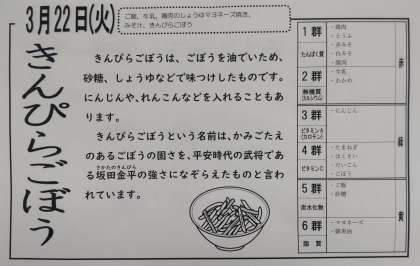 3月22日(火)
ご飯、牛乳、鶏肉のしょうゆマヨネーズ焼き、
みそ汁、きんぴらごぼう
きんぴらごぼう
きんぴらごぼうは、ごぼうを油でいため、
砂糖、しょうゆなどで味つけしたものです。
にんじんや、れんこんなどを入れることもあ
ります。
きんぴらごぼうという名前は、かみごたえ
のあるごぼうの固さを、平安時代の武将であ
る坂田金平の強さになぞらえたものと言わ
さかたのきんぴら
れています。
1群
たんぱく質
・鶏肉
・とうふ
・赤みそ
・白みそ
2群
無機質
(カルシウム)
・牛乳
・わかめ
赤
3群
ビタミンA
(カロテン)
・にんじん
4群
ビタミンC
・たまねぎ
・はくさい
・だいこん
・ごぼう
緑
5群
炭水化物
・ご飯
・砂糖
6群
脂質
・マヨネーズ
・綿実油
黄